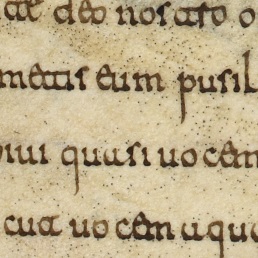 deo nostro o
metis eum pusil
uiui quasi uocem
cut uocem aqua